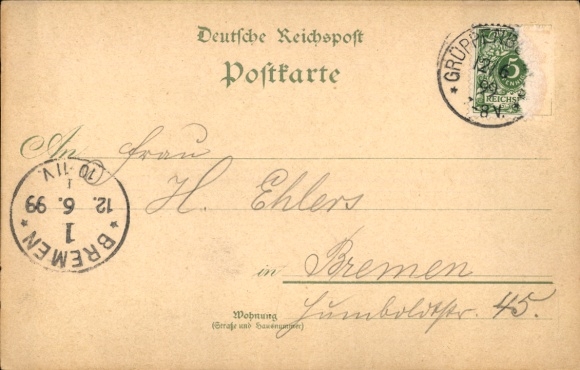 Deutsche Reichspost
Postkarte
12/6
99
5
REICHS
8V.
An Frau
H. Ehlers
BREMEN
1
12. 6. 99
10-11V.
in Bremen
Humboldtstr. 45.
Wohnung
(Straße und Hausnummer)